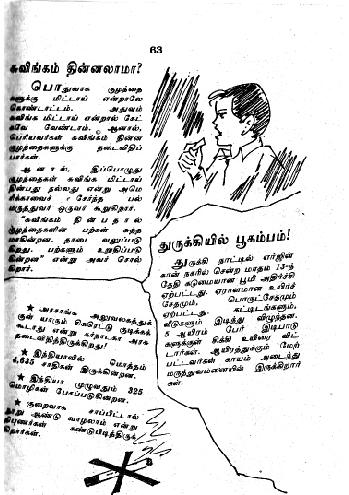 63
சுவிங்கம் தின்னலாமா?
பொதுவாக குழந்தை
களுக்கு மிட்டாய் என்றாலே
கொண்டாட்டம். அதுவும்
சுவிங்க மிட்டாய் என்றால் கேட்
கவே வேண்டாம். ஆனால்,
பெரியவர்கள் சுவிங்கம் தின்ன
குழந்தைகளுக்கு தடைவிதிப்
பார்கள்
ஆனால், இப்பொழுது
குழந்தைகள் சுவிங்க மிட்டாய்
தின்பது நல்லது என்று அமெ
ரிக்காவைச் சேர்ந்த பல்
மருத்துவர் ஒருவர் கூறுகிறார்.
"சுவிங்கம் தின்பதால்
குழந்தைகளின் பற்கள் சுத்த
மாகின்றன. தாடை வலுப்படு
கிறது. பற்களும் உறுதிப்படு
கின்றன" என்று அவர் சொல்
கிறார்.
★ அரசாங்க அலுவலகத்துக்
குள் யாரும் சிகரெட்டு குடிக்கக்
கூடாது என்று கர்நாடகா அரசு
தடைவிதித்திருக்கிறது!
★ இந்தியாவில் மொத்தம்
4,635 சாதிகள் இருக்கின்றன.
★ இந்தியா முழுவதும் 325
மொழிகள் பேசப்படுகின்றன.
★ குறைவாக சாப்பிட்டால்
நூறு ஆண்டு வாழலாம் என்று
நிபுணர்கள் கண்டுபிடித்திருக்
கிறார்கள்.
துருக்கியில் பூகம்பம்!
துருக்கி நாட்டில் எர்ஜின்
கான் நகரில் சென்ற மாதம் 13-ந்
தேதி கடுமையான பூமி அதிர்ச்சி
ஏற்பட்டது. ஏராளமான உயிர்ச்
சேதமும், பொருட்சேதமும்
ஏற்பட்டது. கட்டிடங்களும்,
வீடுகளும் இடிந்து விழுந்தன.
5 ஆயிரம் பேர் இடிபாடு
களுக்குள் சிக்கி உயிரை விட்
டார்கள். ஆயிரத்துக்கும் மேற்
பட்டவர்கள் காயம் அடைந்து
மருந்துவமனையில் இருக்கிறார்
கள்